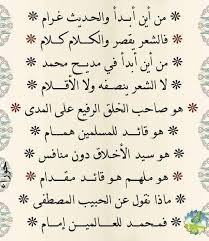 من أين أبدأ والحديث غرام
فالشعر يقصر والكلام كلام
من أين أبدأ في مديح محمد
لا الشعر ينصفه ولا الأقلام
هو صاحب الخلق الرفيع على المدى
هو قائد للمسلمين همام
هو سيد الأخلاق دون منافس
هو ملهم هو قائد مقدام
ماذا نقول عن الحبيب المصطفى
فمحمد للعالمين إمام